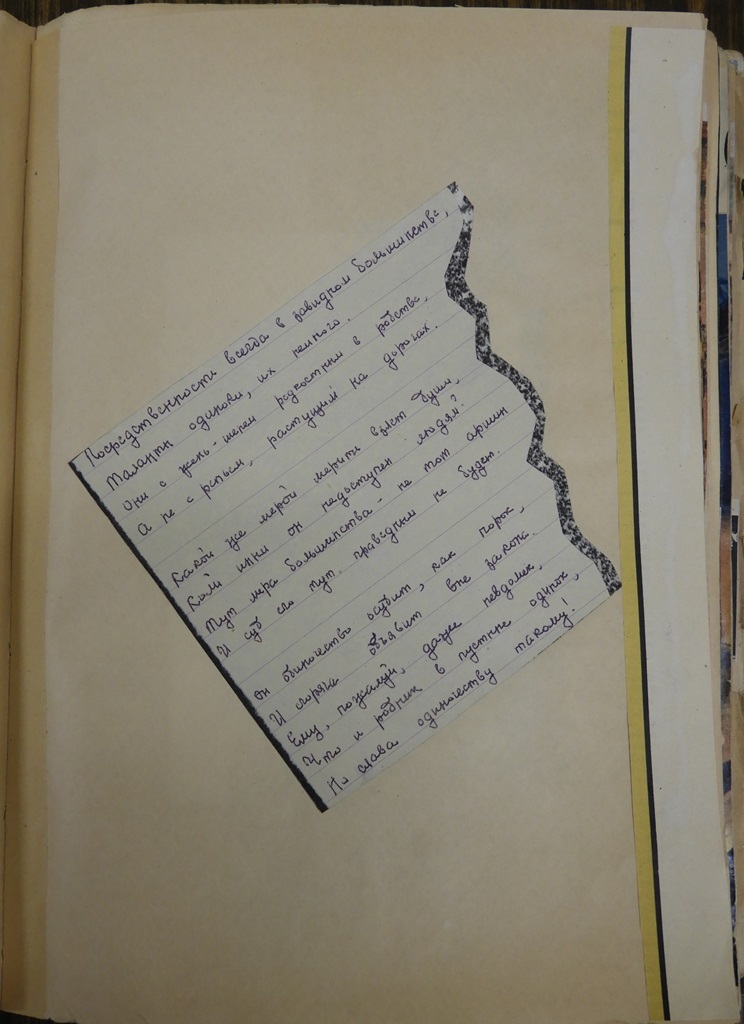 Посредственности всегда в завидном большинстве,
Таланты одиноки, их немного.
Они с жень-шенем редкостным в родстве,
А не с репьем, растущим на дорогах.
Какой же мерой мерить взлёт души,
Коли иным он недоступен людям?
Тут мера большинства - не тот аршин
И суд его тут праведным не будет.
Он одиночество осудит, как порок,
И сгоряча объявит вне закона.
Ему, пожалуй, даже невдомек,
Что и родник в пустыне одинок,
Но слава одиночеству такому!